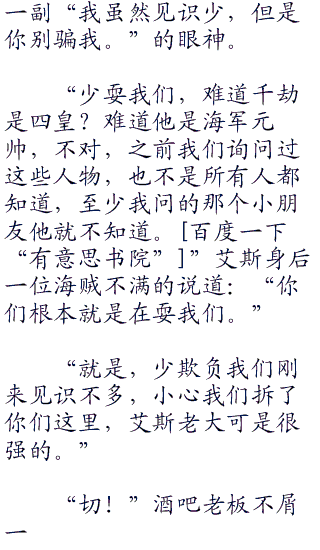 一副“我虽然见识少，但是
你别骗我。”的眼神。
“少耍我们，难道千劫
是四皇？难道他是海军元
帅，不对，之前我们询问过
这些人物，也不是所有人都
知道，至少我问的那个小朋
友他就不知道。[百度一下
“有意思书院”]”艾斯身后
一位海贼不满的说道：“你
们根本就是在耍我们。”
“就是，少欺负我们刚
来见识不多，小心我们拆了
你们这里，艾斯老大可是很
强的。”
“切！”酒吧老板不屑
一